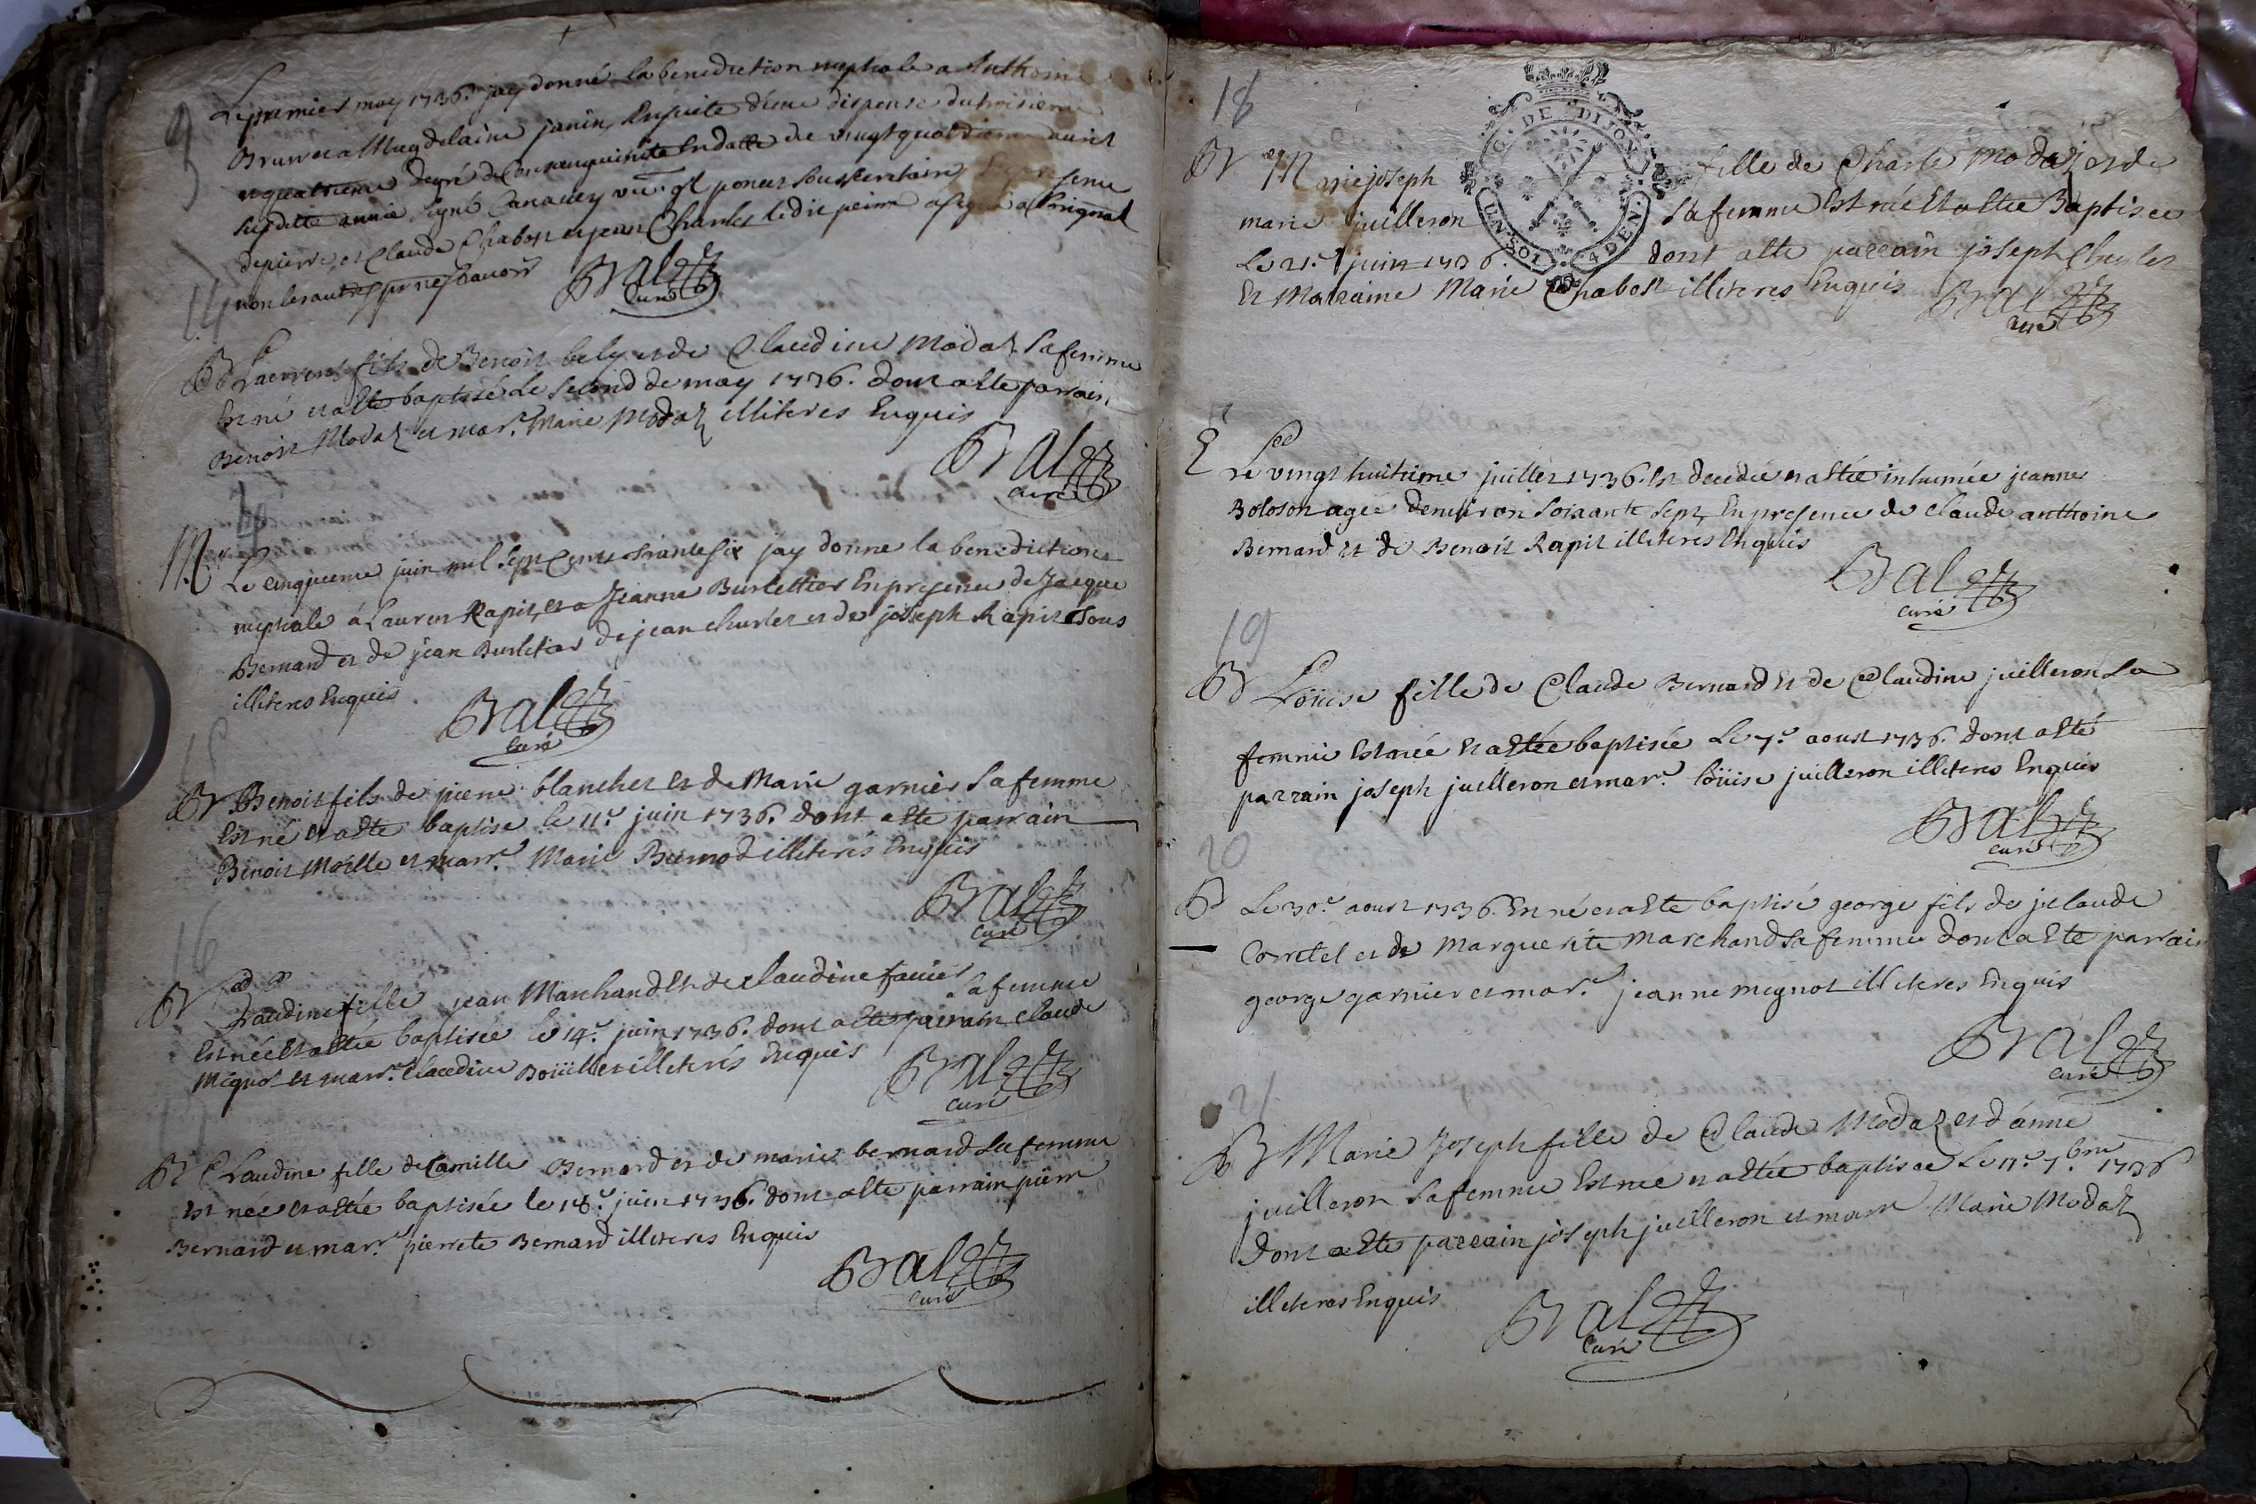 Le premier may 1736. jay donné la benediction nuptiale a Anthoine
Brunet a Magdelaine janin, Ensuite d'une dispense du troisieme
et quatrieme degré de Consanguinité En datte de vingt quatrieme avril
susditte année signé Canavey
de pierre, et Claude Chabot et jean Charles ledit peirre a signé a l'original
non les autres pr ne sçavoir
Bral
Curé
14
Bt Laurens fils de Benoit bely et de Claudine Modaz sa femme
Est né et a esté baptisé Le second de may 1736. dont a esté parrain
Benoit Modaz et mar.e Marie Modaz illiteres Enquis
Bral
curé
M Le cinquieme juin mil sept cents trante six jay donne la benediction
nuptiale à Laurens Rapit, et a Jeanne Burlettier En presence de Jacque
Bernard et de jean Burletier de jean charles et de joseph Rapit tous
illiteres Enquis
Bral
Curé
15
Bt Benoit fils de pierre blanchet et de Marie garnier sa femme
Est né et a esté baptise le 11.e juin 1736. dont a este parrain
Benoit Moëlle et marr.e Marie Bernard illiterés Enquis
Bral
Curé
16
Bt Claudine fille jean Marchand et de claudine favier sa femme
Est née Et a estée baptisée le 14.e juin 1736. dont a esté parrain Claude
Mignot et marr.e Claudine Boüillet illiterés Enquis
Bral
curé
17
Bt Claudine fille de Camille Bernard et de marie bernard sa femme
Est née et a estée baptisée le 18.e juin 1736. dont a esté parrain pierre
Bernard et marr.e pierrete Bernard illiteres Enquis
Bral
Curé
18
G. DE DIJON
UN SOL 4 DEN.
Bt Marie joseph fille de Charle Modaz et de
marie juilleron sa femme Est née Et a estée Baptisée
Le 21.e juin 1736. dont a esté parrain joseph Charles
Et Marraine Marie Chabot illiteres Enquis
Bral
curé
Le vingt huitieme juillet 1736. Est decedée et a estée inhumée jeanne
Boloson agée d'environ soixante sept, En presence de Claude anthoine
Bernard et de Benoit Rapit illiteres Enquis
Bral
curé
19
Bt Loüise fille de Claude Bernard et de Claudine juilleron sa
femme Est née Et a estée baptisée Le 7.e aoust 1736. dont a esté
parrain joseph juilleron et mar.e loüise juilleron illiteres Enquis
Bral
curé
20
Bt Le 30.e aoust 1736. Est né et a esté baptisé george fils de claude
Corretel et de Marguerite Marchand sa femme dont a esté parrain
george garnier et mar.e jeanne mignot illiteres Enquis
Bral
curé
21
Bt Marie Joseph fille de Claude Modaz et d'anne
juilleron sa femme Est née et a estée baptisée Le 11.e 7.bre 1736
dont a esté parrain joseph juilleron et marr Marie Modaz
illiteres Enquis
Bral
Curé